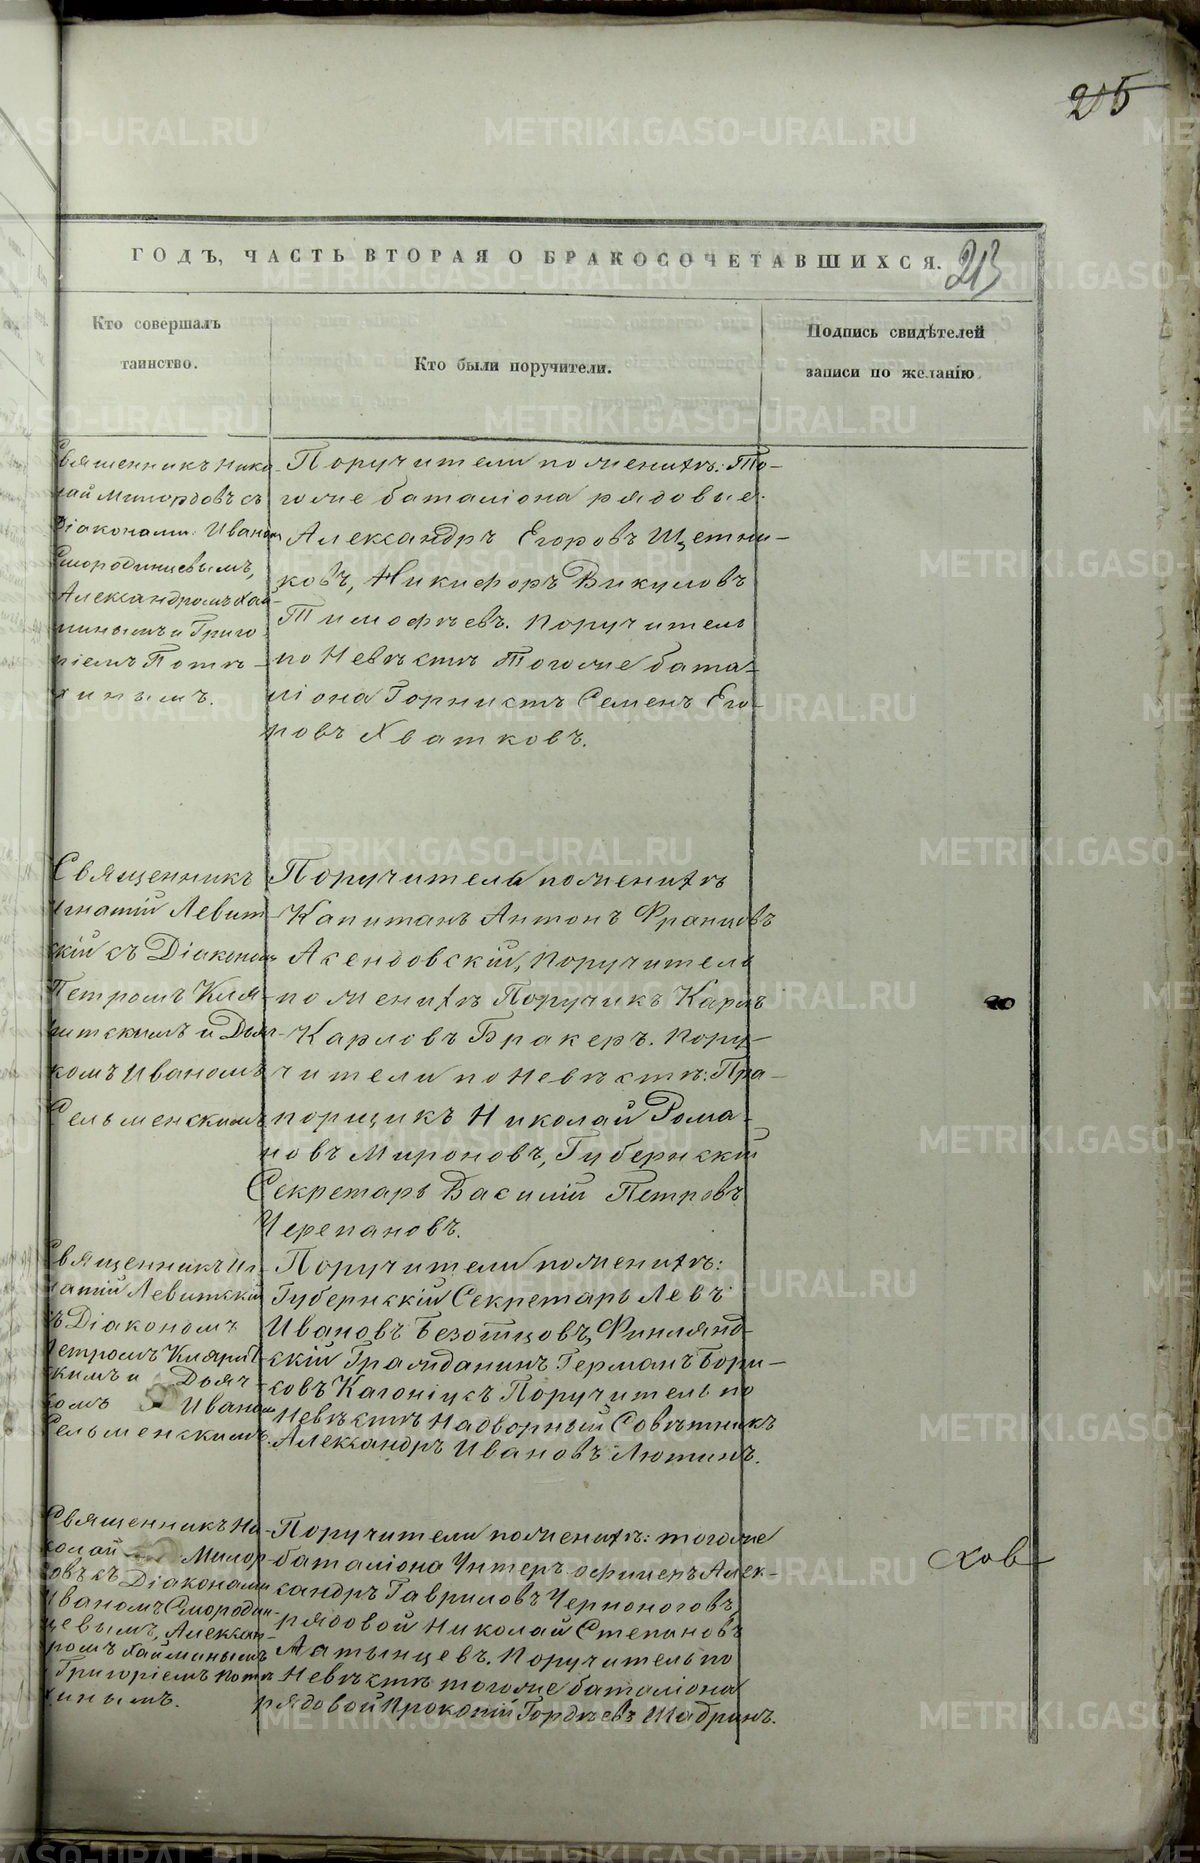 215
ГОДЪ, ЧАСТЬ ВТОРАЯ О БРАКОСОЧЕТАВШИХСЯ.
213
Кто совершалъ
таинство.
Кто были поручители.
Подпись свидѣтелей
записи по желанію.
Священникъ Нико-
лай Милордовъ съ
Діаконами Иваном
Смородинцевымъ,
Александромъ Хай-
миным и Григо
ріемъ Поте-
хинымъ.
Поручители по женихѣ: То-
гоже баталіона рядовые:
Александръ Егоровъ Щетни-
ковъ, Никифоръ Викуловъ
Тимофѣевъ. Поручитель
по Невѣстѣ Тогоже бата-
ліона Горнистъ Семенъ Его-
ровъ Хватковъ.
Священникъ
Игнатій Левит-
скій съ Діакономъ
Петромъ Кля-
ритскимъ и Дьяч-
комъ Иваномъ
Сельменскимъ
Поручитель по женихѣ
Капитанъ Антонъ Францовъ
Асендовскій, Поручитель
по Женихѣ Поручикъ Карлъ
Карловъ Бракеръ. Пору-
чители по Невѣстѣ: Пра-
порщикъ Николай Рома-
новъ Мироновъ, Губернскій
Секретарь Василій Петровъ
Черепановъ.
Священникъ Иг-
натій Левитскій
съ Діакономъ
Петромъ Кляритс-
кимъ и Дьяч-
комъ Иваном
Сельменскимъ.
Поручители по женихѣ:
Губернскій Секретарь Левъ
Ивановъ Безотцовъ, Финлянд-
скій Гражданинъ Германъ Бори-
совъ Поручитель по
Невѣстѣ Надворный Совѣтникъ
Александръ Ивановъ Лютинъ.
Священникъ Ни-
колай Милор-
довъ съ Діаконами
Иваномъ Смородин-
цевымъ, Алексан-
ромъ Хайминымъ
Григоріемъ Поте
хинымъ.
Поручители по женихѣ: тогоже
баталіона Унтеръ-офицеръ Алек-
сандръ Гавриловъ Черноноговъ,
рядовой Николай Степановъ
Латынцевъ. Поручитель по
Невѣстѣ тогоже баталіона
рядовой Прокопій Гордѣевъ Шадринъ.
хов
METRIKI.GASO-URAL.RU